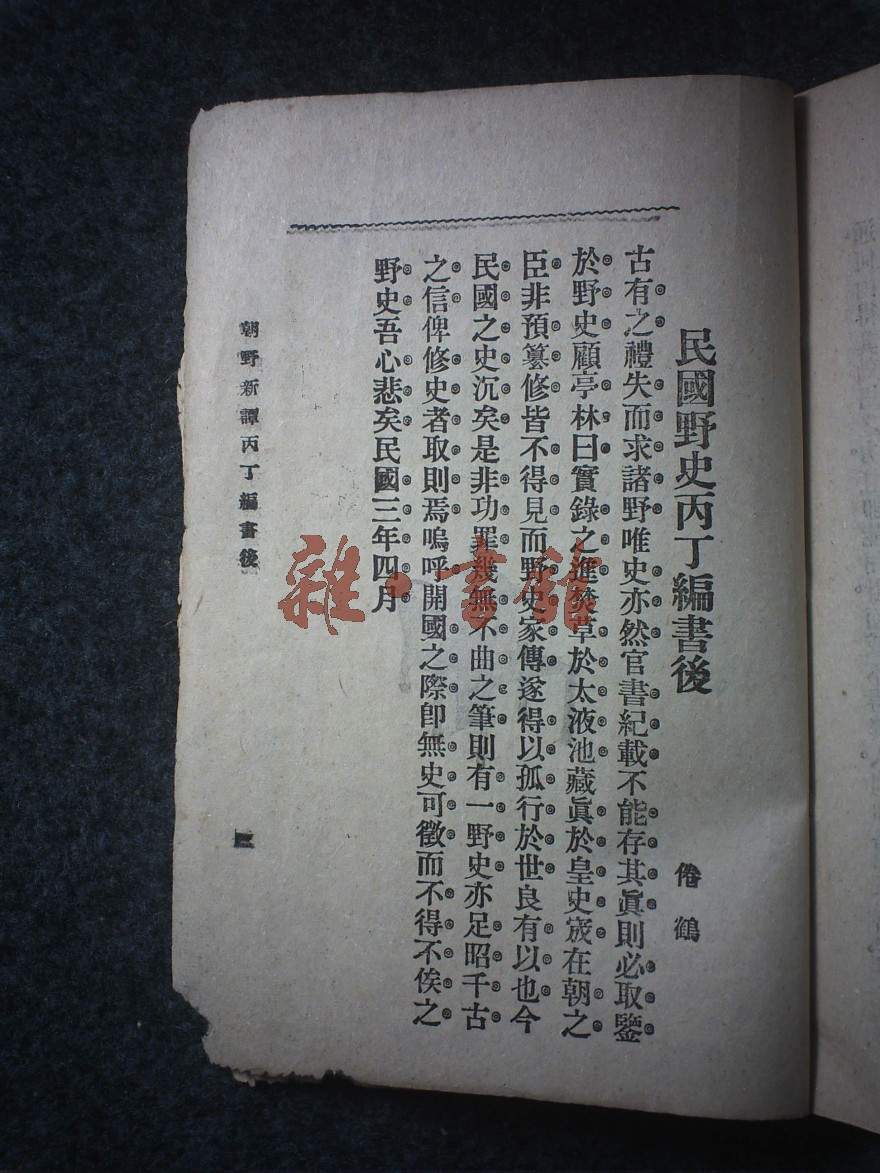 民國野史丙丁編書後
倦鶴
古有之禮失而求諸野唯史亦然官書紀載不能存其眞則必取鑒
於野史顧亭林曰實錄之進焚草於太液池藏眞於皇史宬在朝之
臣非預篹修皆不得見而野史家傳遂得以孤行於世良有以也今
民國之史沉矣是非功罪幾無不曲之筆則有一野史亦足昭千古
之信俾修史者取則焉嗚呼開國之際卽無史可徵而不得不俟之
野史吾心悲矣民國三年四月
朝野新譚丙丁編書後
雜·書館